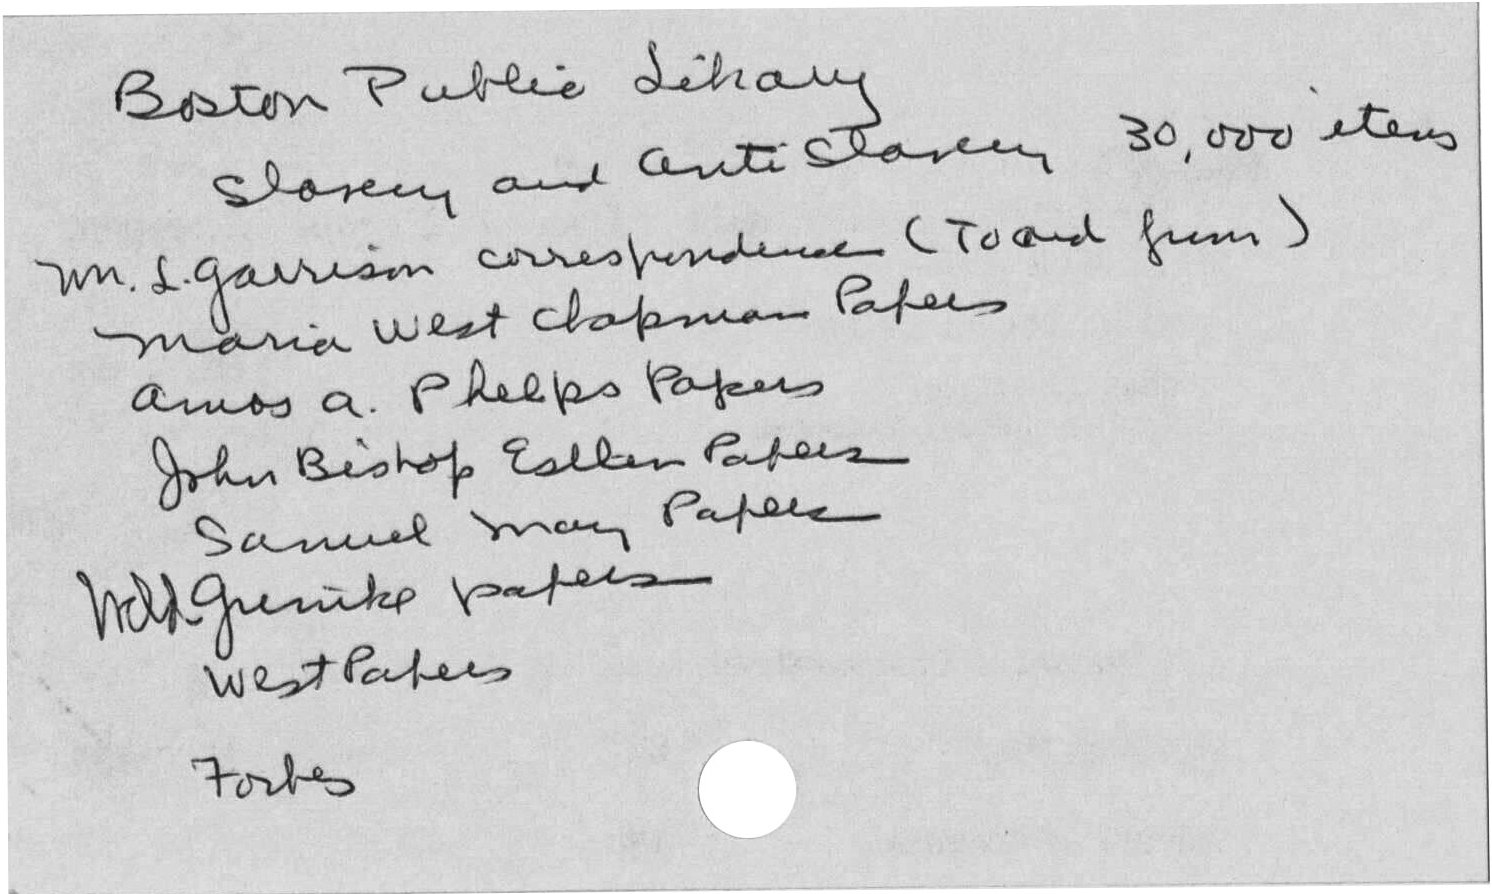 Boston Public Library
Slavery and Anti Slavery 30,000 items
Wm. L. Garrison correspondence (To and from)
Maria West Chapman Papers
Amos A. Phelps Papers
John Bishop Estlin Papers
Samuel May Papers
Weld Grimke papers
West Papers
Forbes